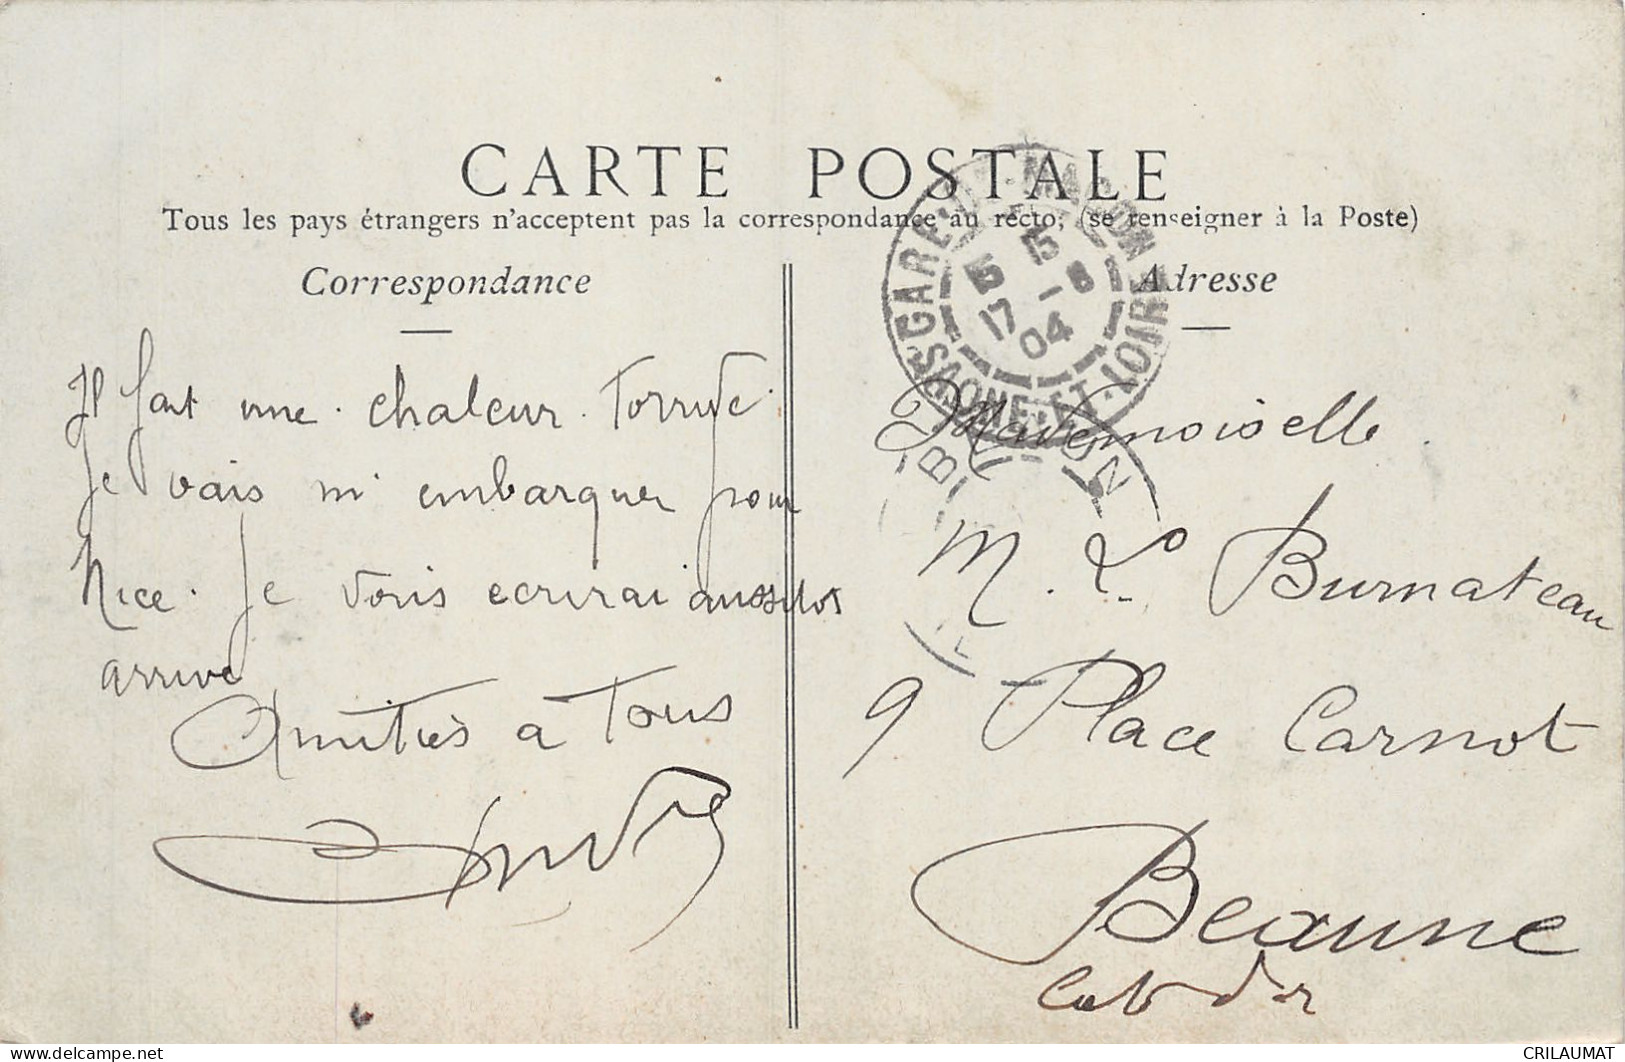 CARTE POSTALE
Tous les pays étrangers n'acceptent pas la correspondance au recto, (se renseigner à la Poste)
Correspondance
Il fait une chaleur torride.
Je vais m'embarquer pour
Nice. Je vous ecrirai aussitot
arrivé
Amitiés à tous
André
Adresse
GARE DE MACON
15 15
17 -8
04
SAONE-ET-LOIRE
Mademoiselle
M. L. Burnateau
9 Place Carnot
Beaune
Cote d'or
delcampe.net
CRILAUMAT